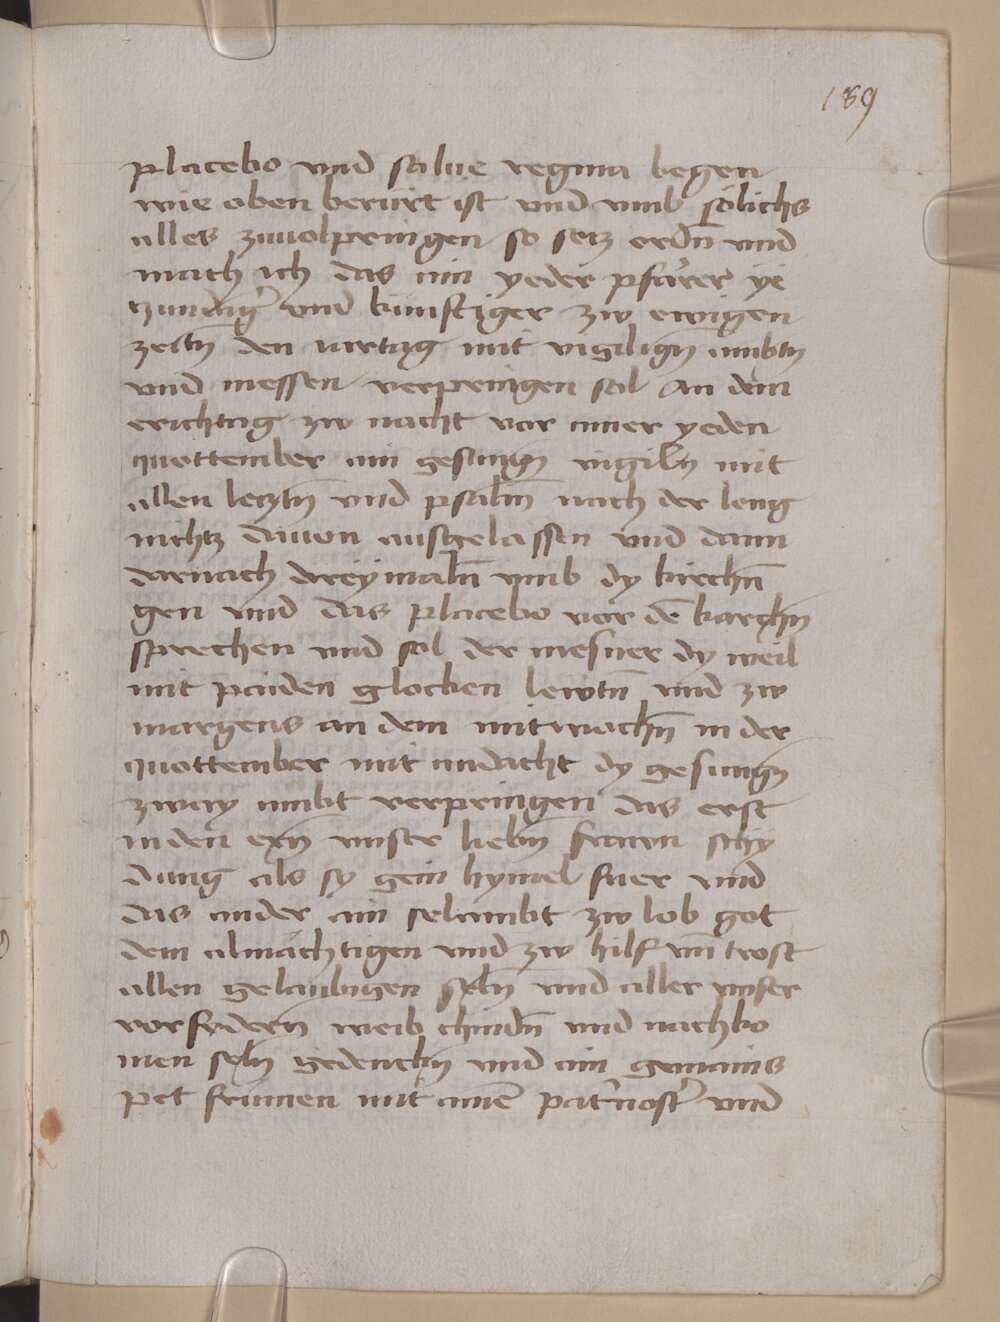 189
placebo vnd salue regina begen
wie oben berürt ist vnd vmb sölichs
alles zuuolpringen so setz ordn̄ vnd
mach ich das ain yeder pfarer ye
zundig̓ vnd künftiger zw ewigen
zeitn̄ den iartag mit vigilign̄ ambtn̄
vnd messen verpringen sol an dem
erichtag zw nacht vor ainer yeden
quottember ain gesungn̄ vigilij mit
allen letztn̄ vnd psalm̄ nach der leng
nichtz dauon ausgelassen vnd dann
darnach dreymaln̄ vmb dy kirchn̄
gen vnd das placebo vor dē karchn̄
sprechen vnd sol der mesner dy weil
mit paiden glocken lewtn̄ vnd zw
margens an dem mitwachn̄ in der
quottember mit andacht dy gesungn̄
zway ambt verpringen das erst
in den ern̄ vnser liebn̄ frawn schy
dung als sy gein hymel fuer vnd
das ander ain selambt zw lob got
dem almächtigen vnd zw hilf vn̄ trost
allen gelaubigen seln̄ vnd aller vnser
vorfodern̄ weib chindn̄ vnd nachko
men seln̄ gedenckn̄ vnd ain gemains
pet frümen mit ainē pat̓nost̓ vnd